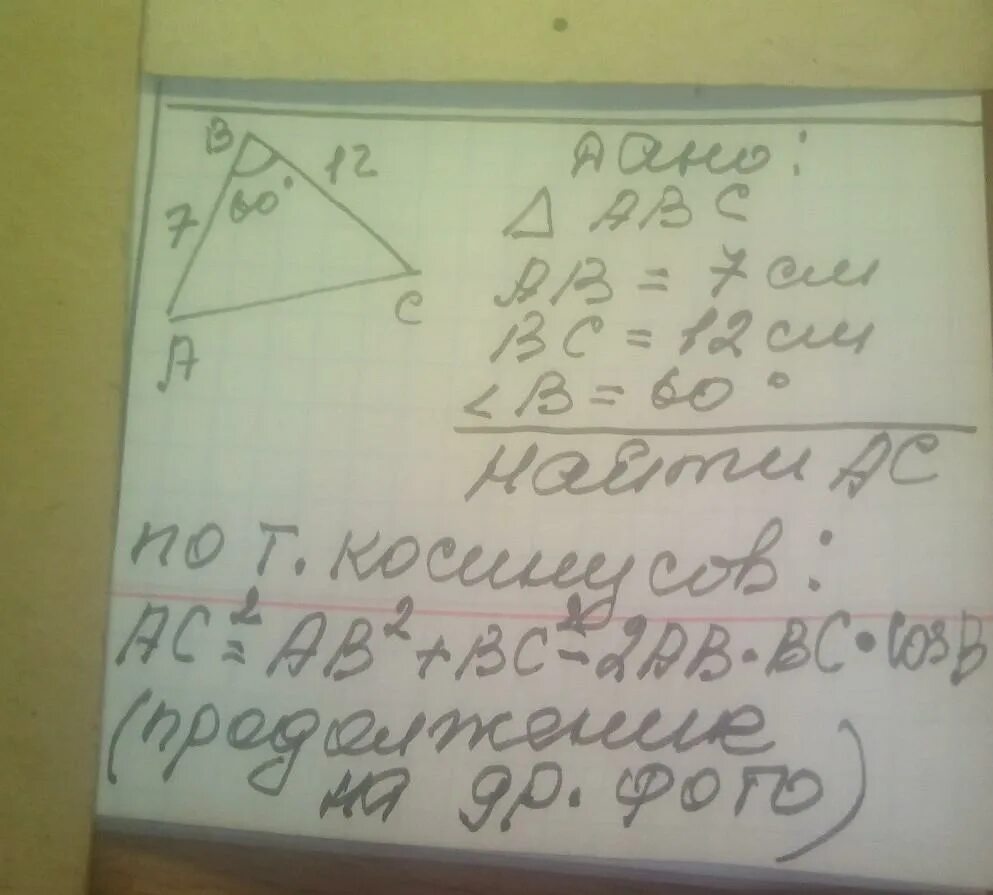 B
12
7
60°
C
A
Дано:
Δ ABC
AB = 7 см
BC = 12 см
∠B = 60°
Найти AC
по т. косинусов:
AC² = AB² + BC² - 2AB · BC · cos B
(продолжение
на др. фото)